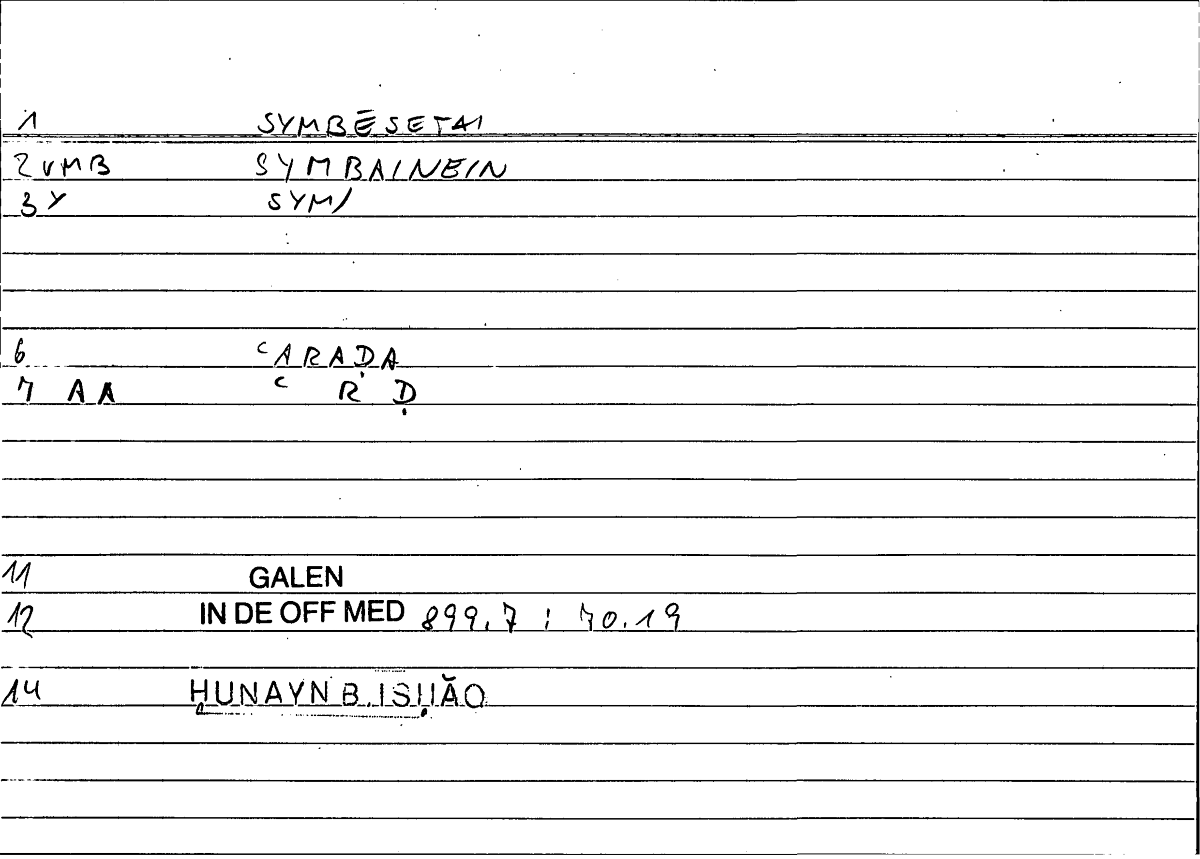 1 SYMBĒSETAI
2 VMB SYMBAINEIN
3 Y SYM/
6 ʿARAḌA
7 AA ʿ R Ḍ
11 GALEN
12 IN DE OFF MED 899.7 : 70.19
14 ḤUNAYN B. ISḤĀQ